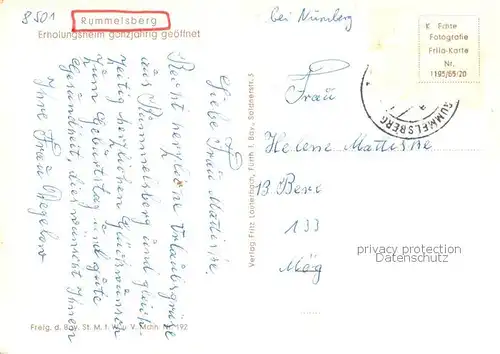 8501
Rummelsberg
bei Nürnberg
Erholungsheim ganzjährig geöffnet
K Echte
Fotografie
Frila-Karte
Nr.
1195/65/20
RUMMELSBERG
Liebe Frau Mattische.
Recht herzliche Urlaubsgrüße
aus Rummelsberg und gleich-
zeitig herzlichen Glückwunsch
zum Geburtstag und gute
Gesundheit, dies wünscht Ihnen
Ihre Frau
Verlag Fritz Lauterbach, Fürth i. Bay., Soldnerstr.
Frau
Helene Mattische
133
privacy protection
Datenschutz
Freig. d. Bay. St. M. f. W. u. V. Mchn. Nr. 192